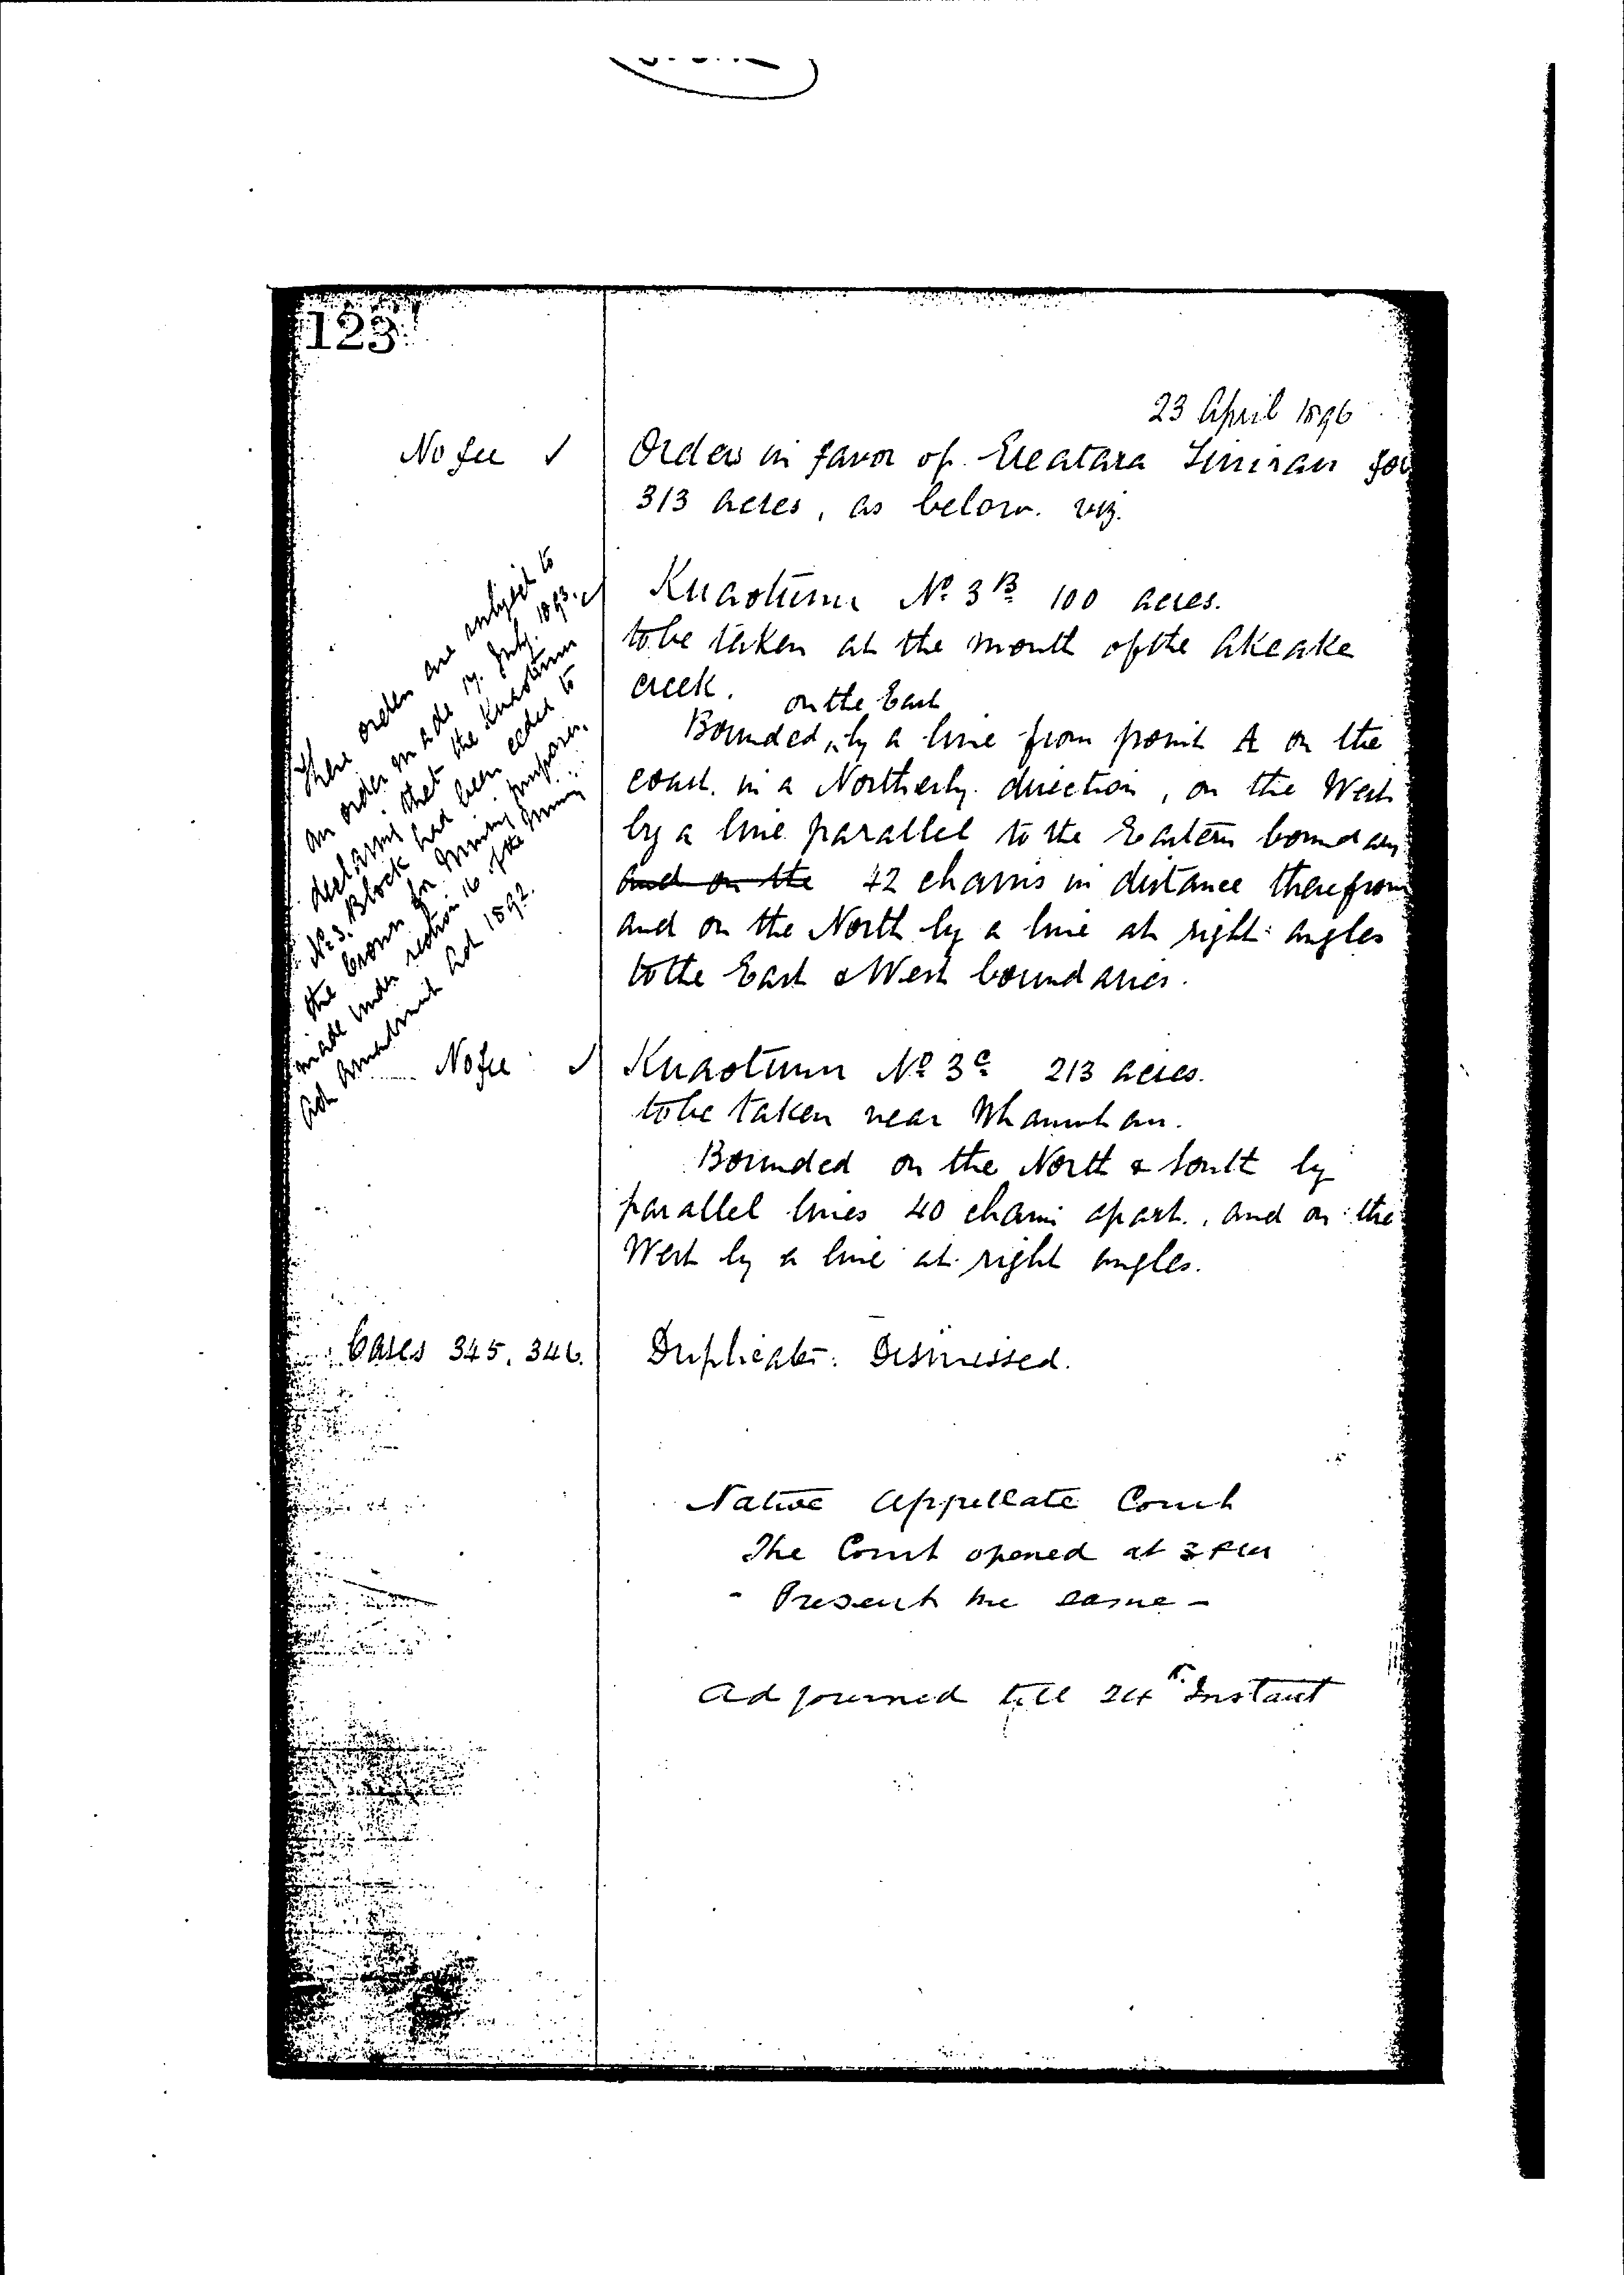 123
23 April 1896
No fee ✓
Orders in favor of for
313 acres, as below. viz.
These orders are subject to
an order made 17 July 1893
declaring that the Kuaotunu
No 3. Block had been ceded to
the Crown for Mining purposes,
made under section 16 of the Mining
Act Amendment Act 1892.
✓ Kuaotunu No 3B 100 acres.
to be taken at the mouth of the Akeake
creek.
on the East
Bounded by a line from point A on the
coast. in a Northerly direction, on the West
by a line parallel to the Eastern boundary
and on the 42 chains in distance therefrom
and on the North by a line at right angles
to the East & West boundaries.
No fee ✓
Kuaotunu No 3C 213 acres.
to be taken near
Bounded on the North & South by
parallel lines 40 chains apart., and on the
West by a line at right angles.
Cases 345. 346.
Duplicates: Dismissed.
Native Appellate Court
The Court opened at 3 PM
- Present the same -
Adjourned till 24th Instant